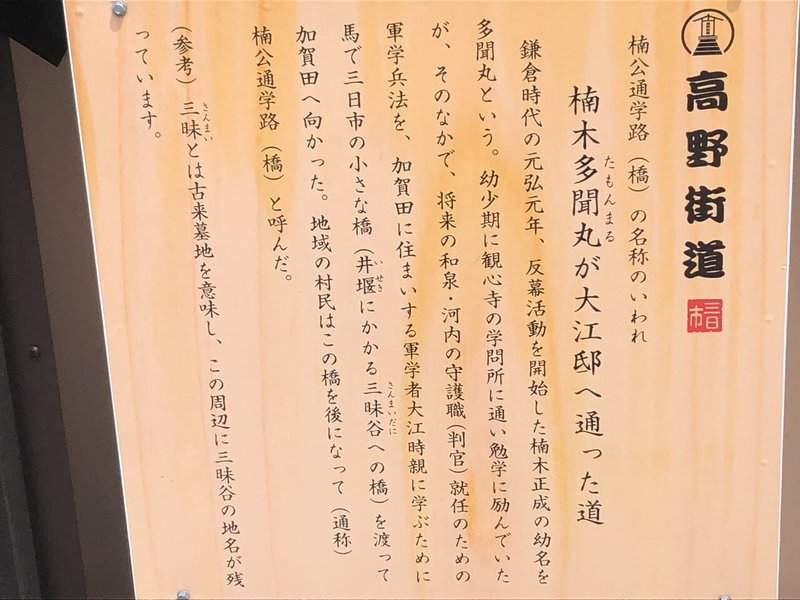 高野街道
三日市
楠公通学路（橋）の名称のいわれ
楠木多聞丸が大江邸へ通った道
たもんまる
鎌倉時代の元弘元年、反幕活動を開始した楠木正成の幼名を
多聞丸という。幼少期に観心寺の学問所に通い勉学に励んでいた
が、そのなかで、将来の和泉・河内の守護職（判官）就任のための
軍学兵法を、加賀田に住まいする軍学者大江時親に学ぶために
馬で三日市の小さな橋（井堰にかかる三昧谷への橋）を渡って
いせき
さんまいだに
加賀田へ向かった。地域の村民はこの橋を後になって（通称）
楠公通学路（橋）と呼んだ。
（参考）三昧とは古来墓地を意味し、この周辺に三昧谷の地名が残
さんまい
っています。